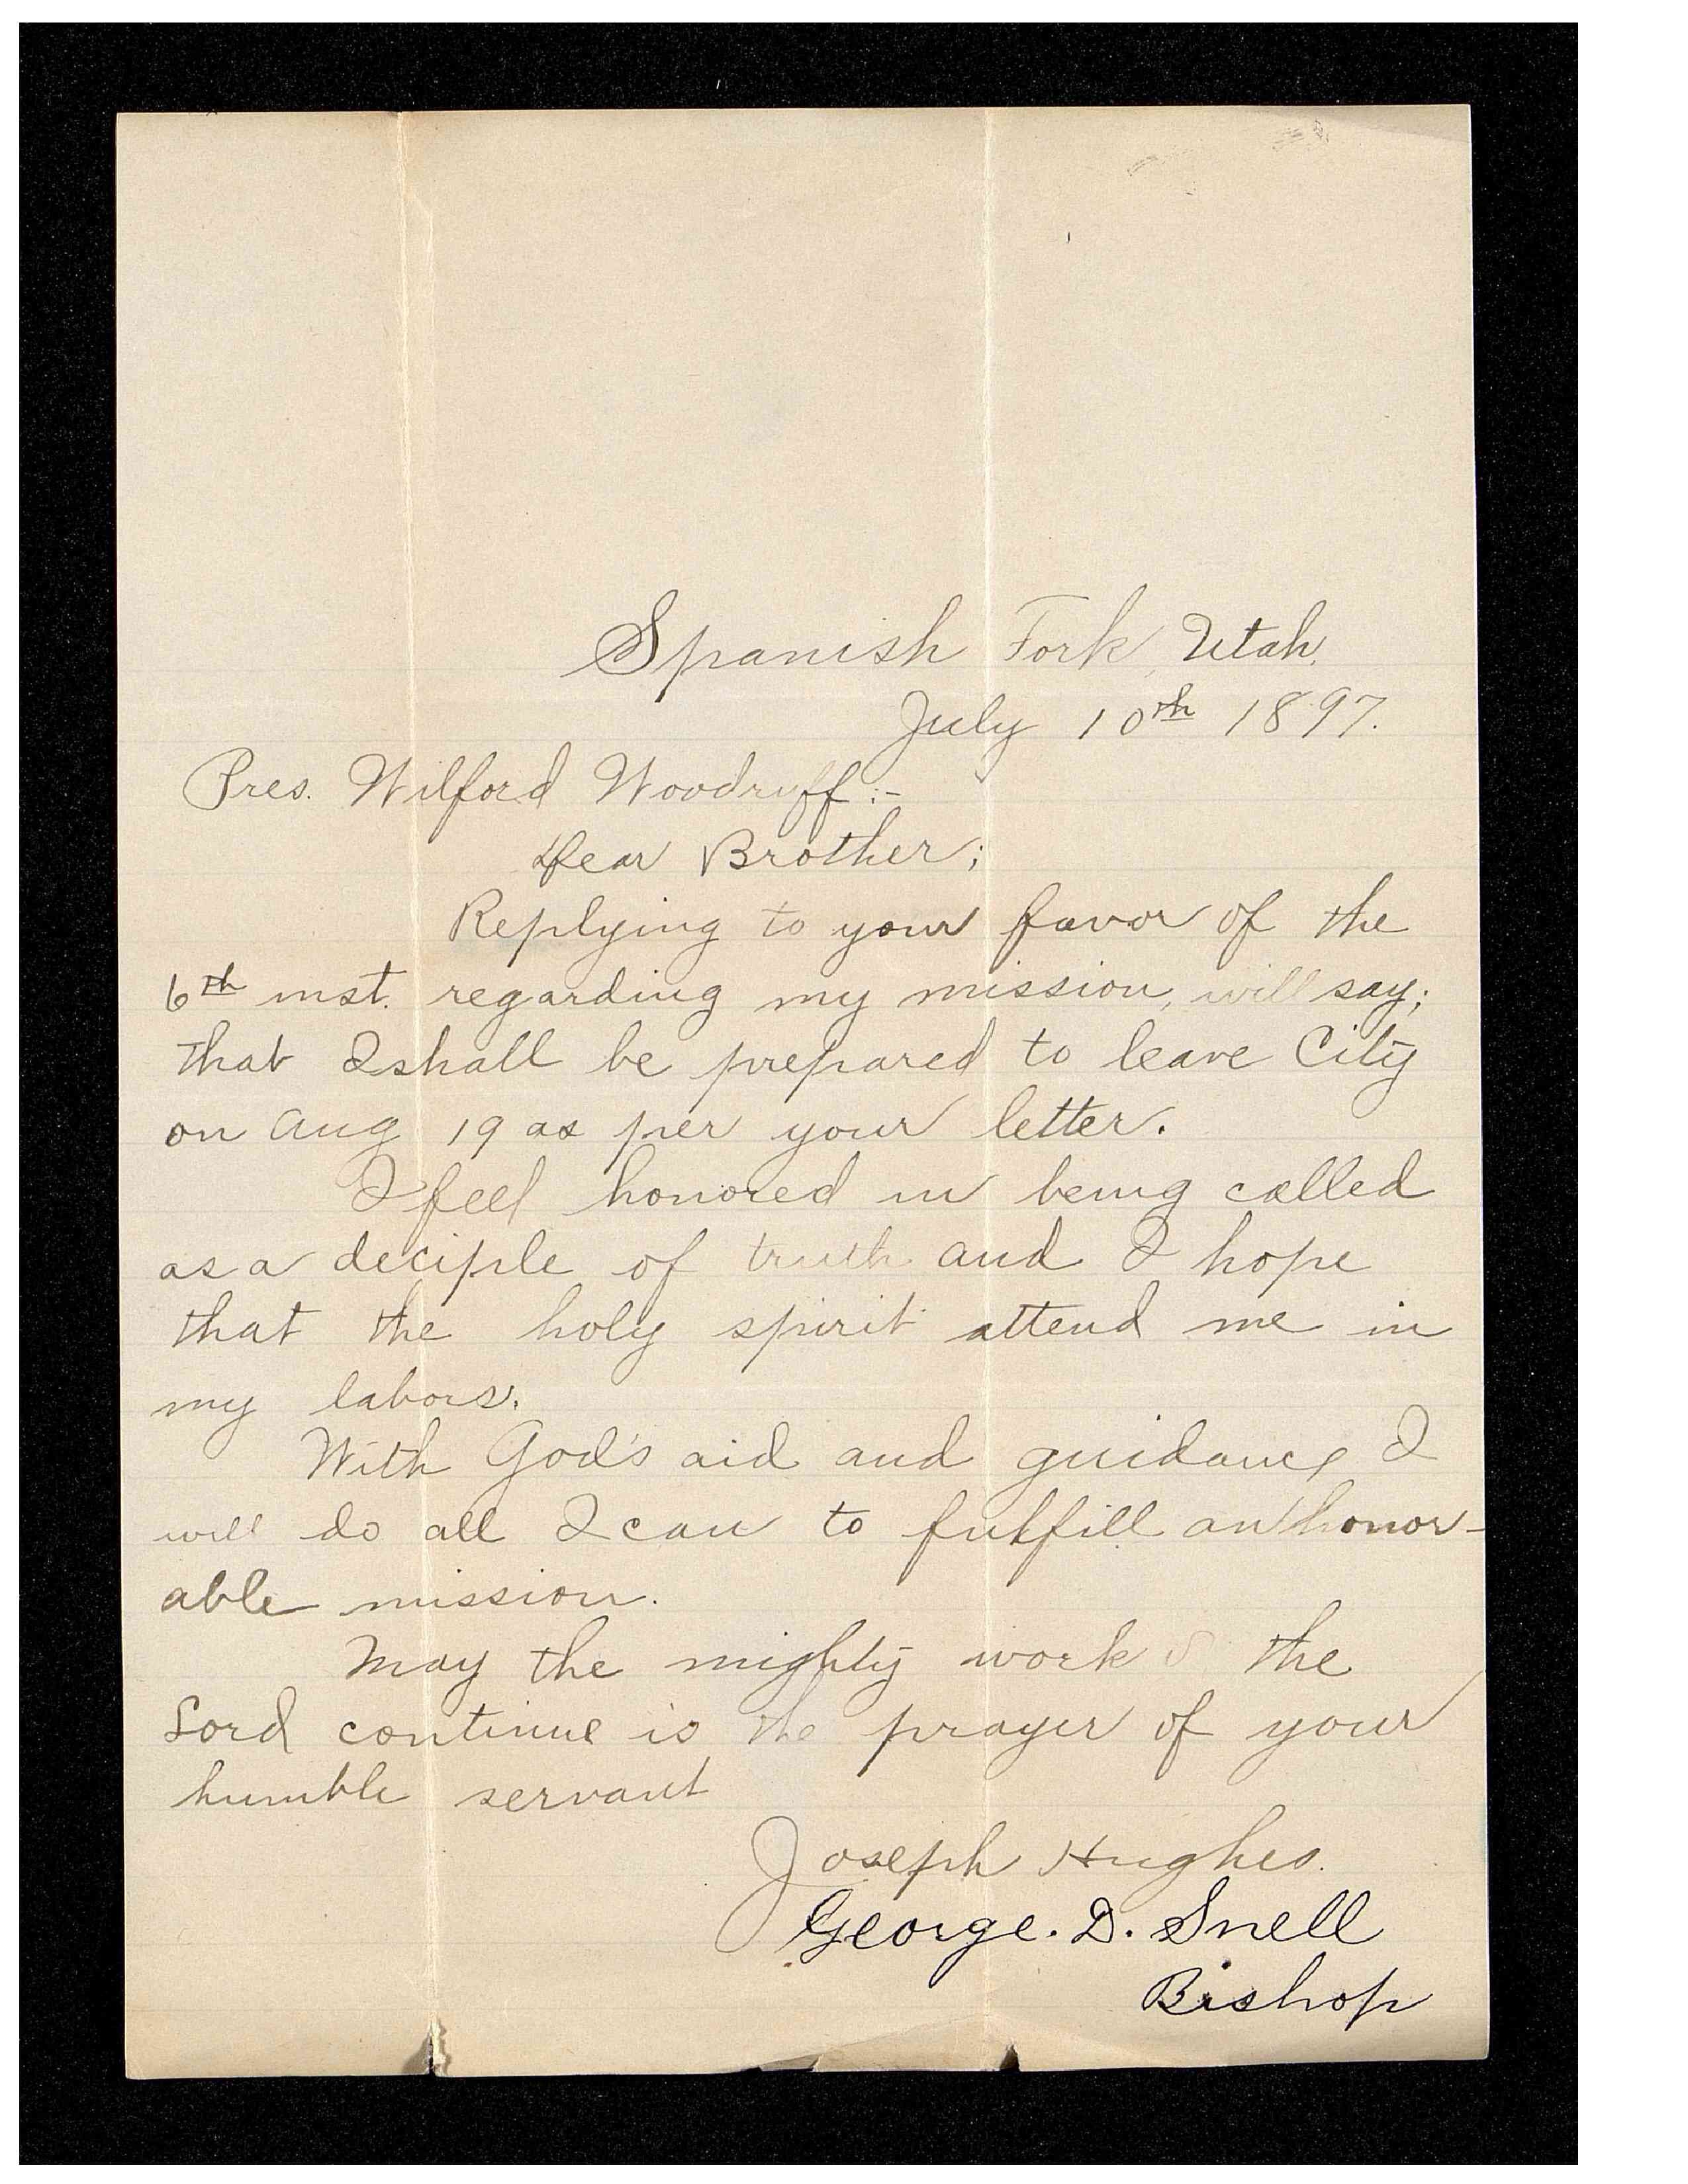 Spanish Fork, Utah,
July 10th 1897.
Pres. Wilford Woodruff:-
Dear Brother;
Replying to your favor of the
6th inst. regarding my mission, will say;
that I shall be prepared to leave City
on Aug 19 as per your letter.
I feel honored in being called
as a deciple of truth and I hope
that the holy spirit attend me in
my labors.
With God's aid and guidance I
will do all I can to fulfill an honor-
able mission.
May the mighty work the
Lord continue is the prayer of your
humble servant
Joseph Hughes.
George. D. Snell
Bishop